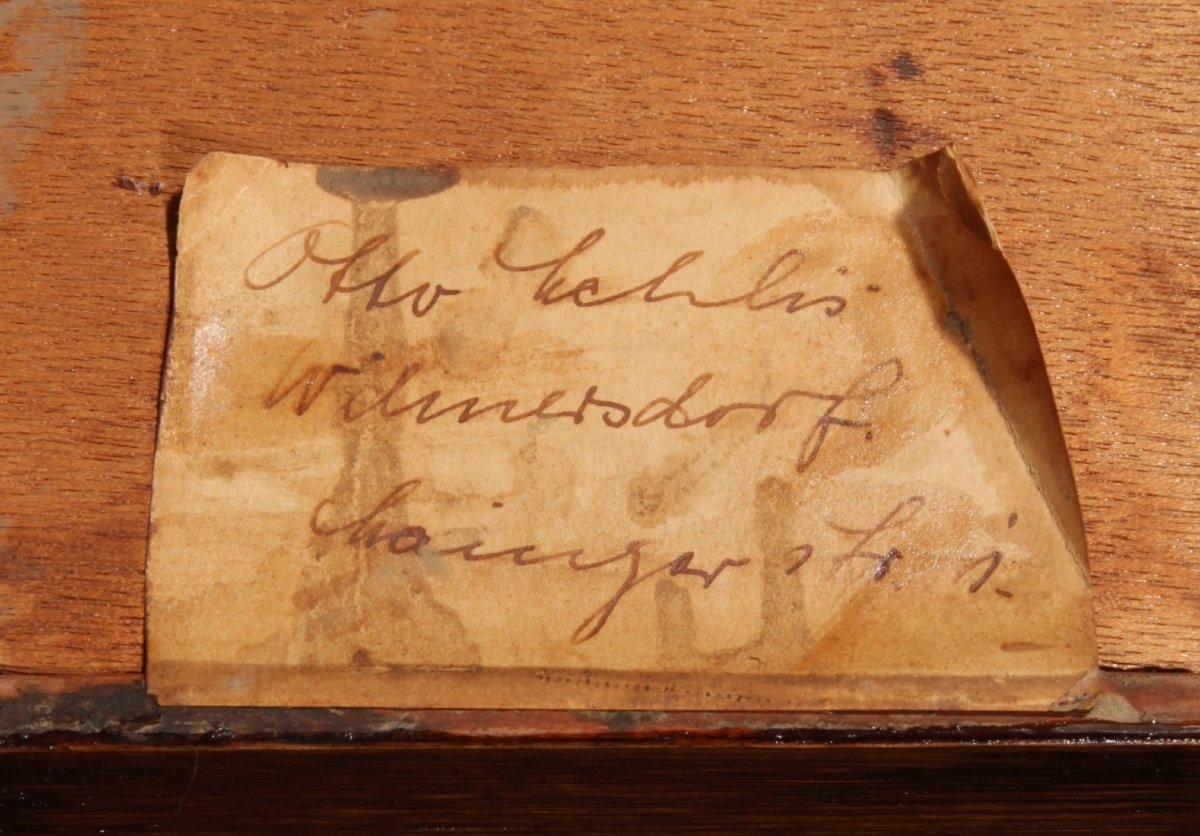 Otto
Wilmersdorf.
Mainzer str. 1.